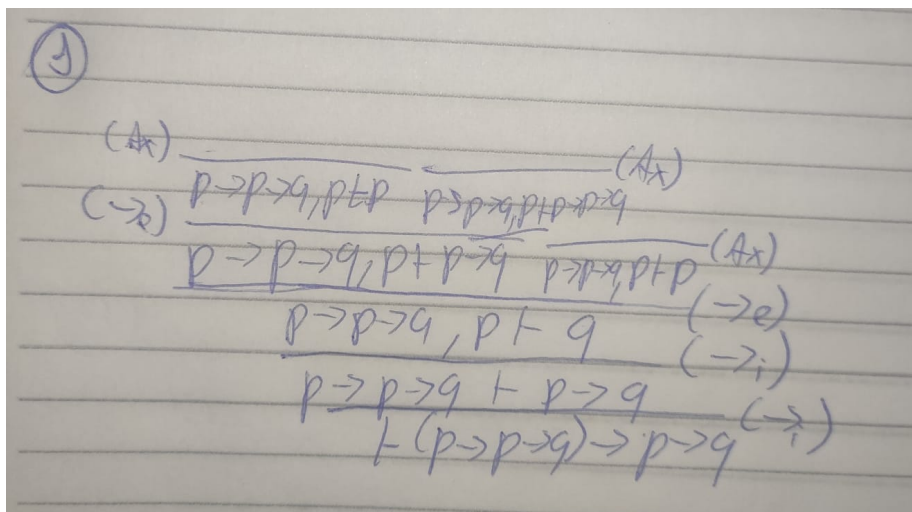 ①
(Ax) (Ax)
p→p→q, p⊢p p→p→q, p⊢p→p→q
(→e)
p→p→q, p⊢p→q p→p→q, p⊢p (Ax)
(→e)
p→p→q, p ⊢ q
(→i)
p→p→q ⊢ p→q
(→i)
⊢(p→p→q)→p→q